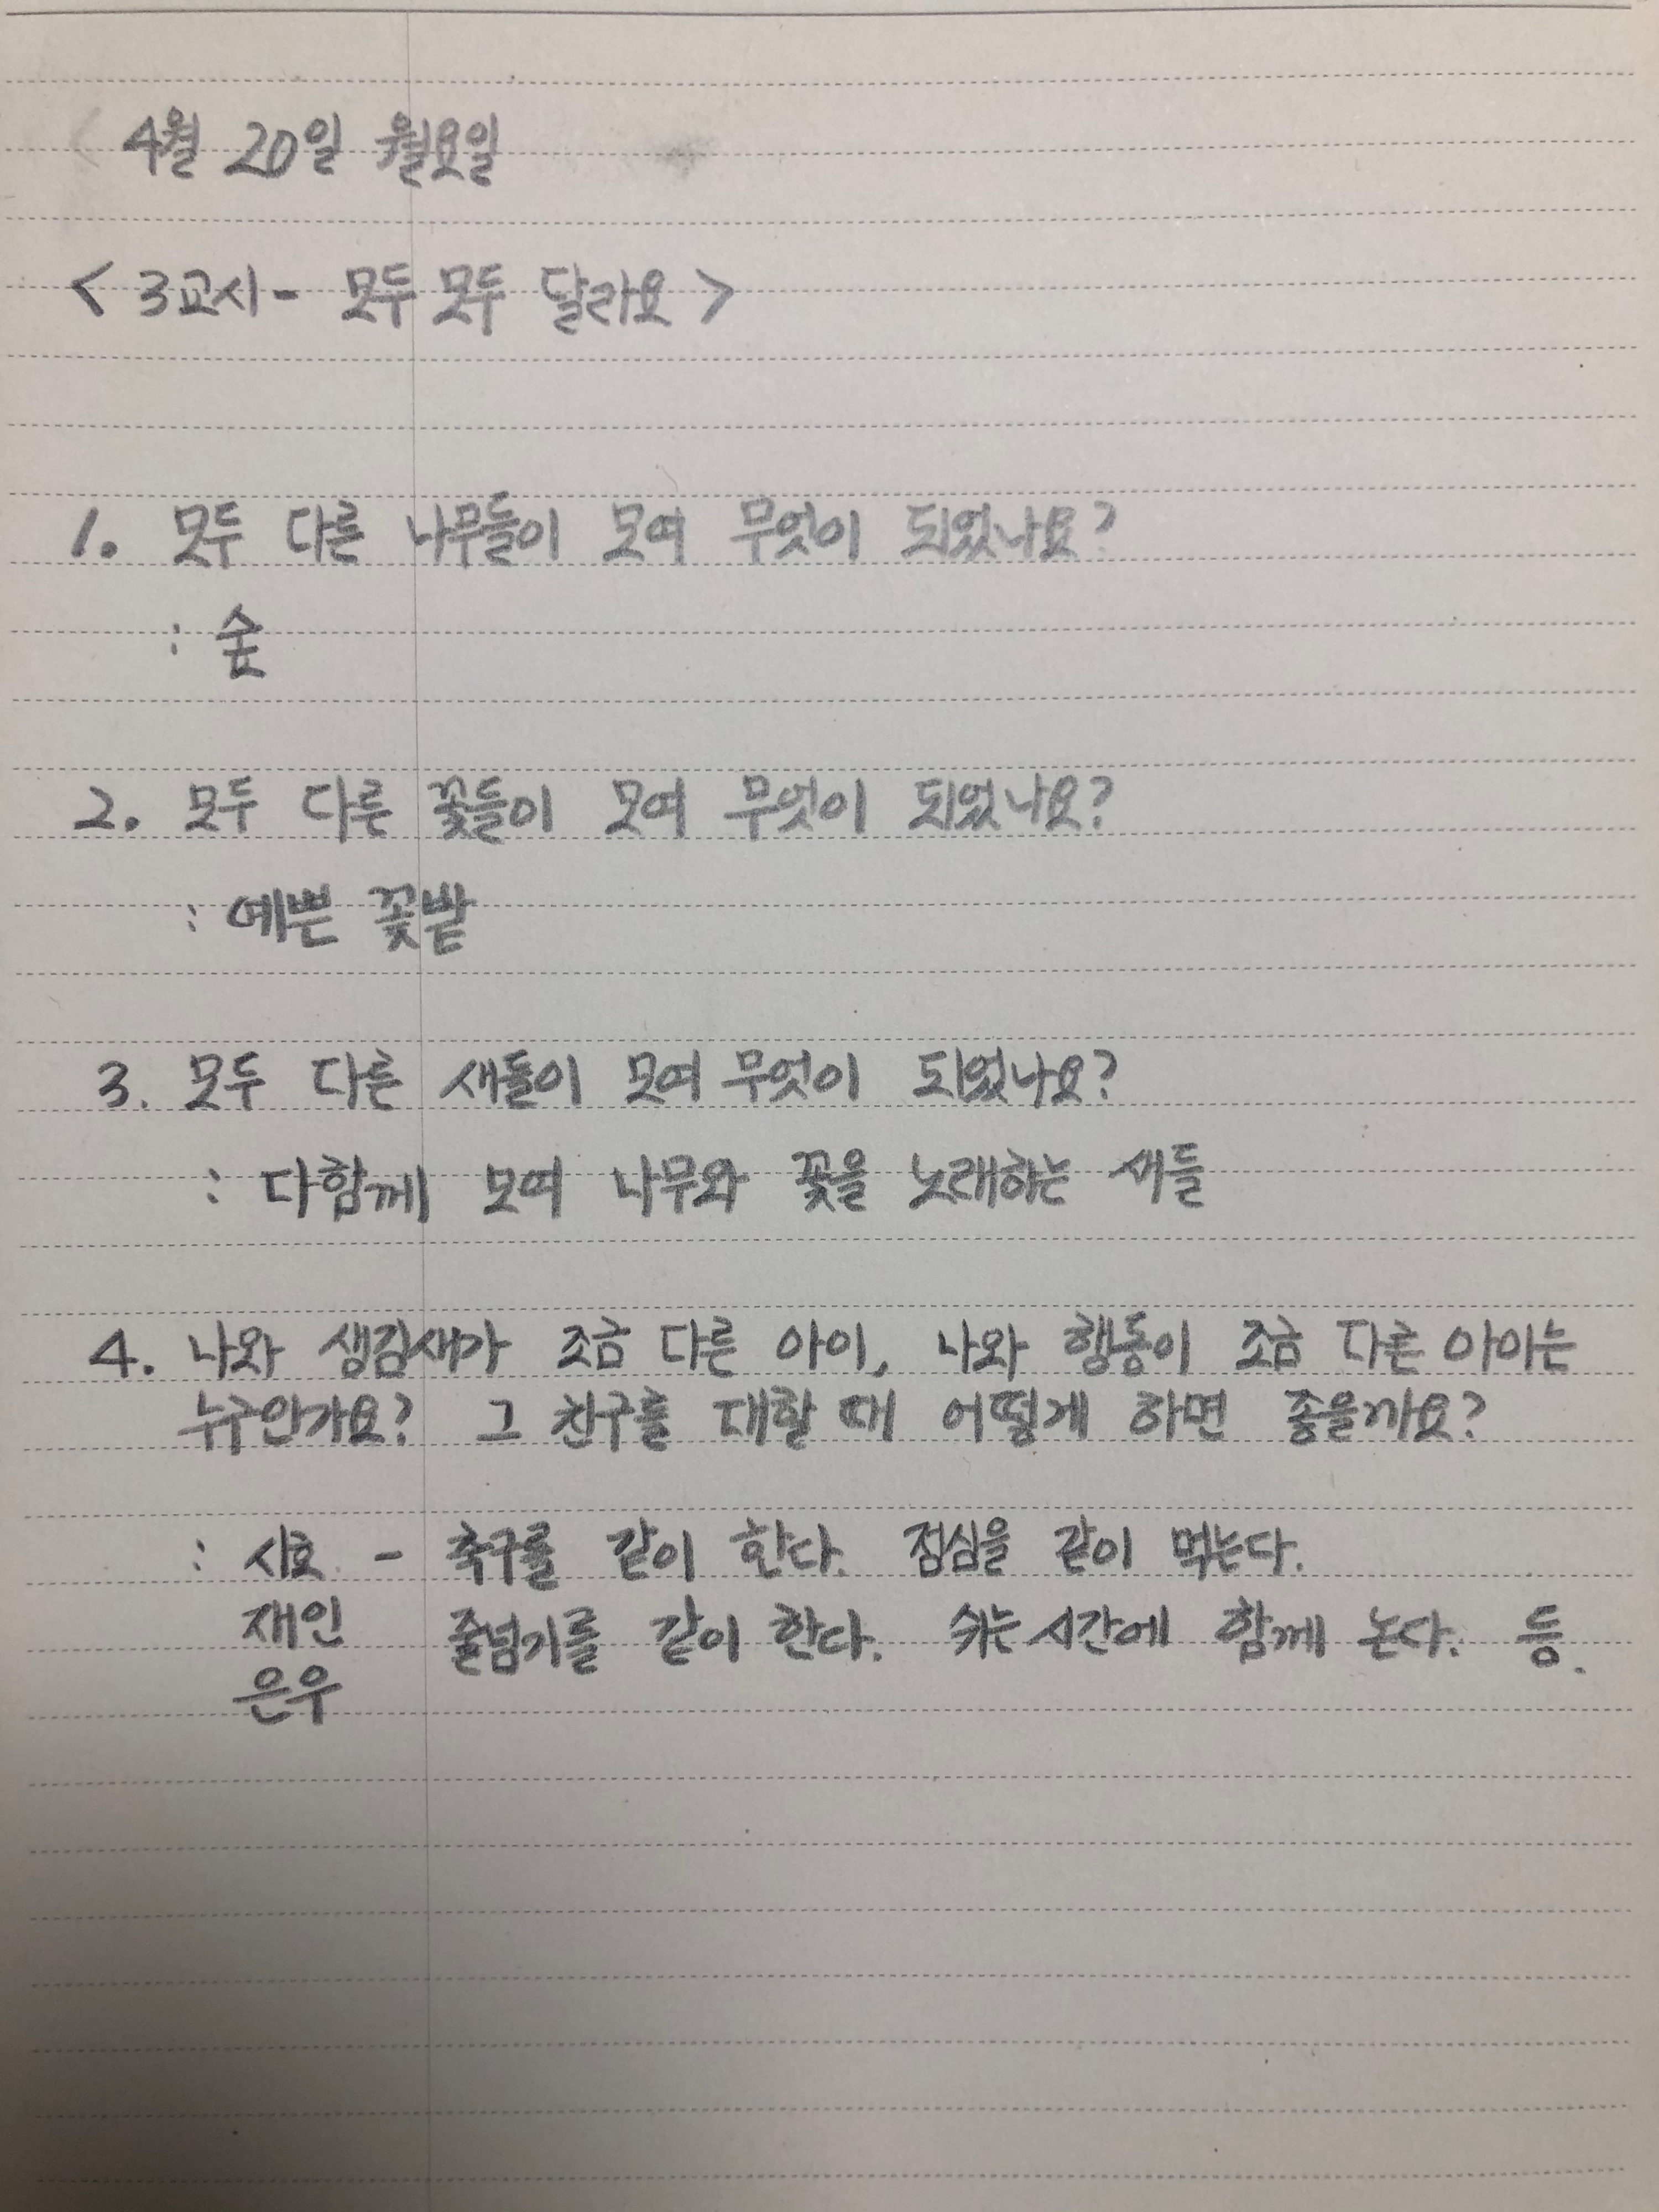 4월 20일 월요일
< 3교시 - 모두 모두 달라요 >
1. 모두 다른 나무들이 모여 무엇이 되었나요?
: 숲
2. 모두 다른 꽃들이 모여 무엇이 되었나요?
: 예쁜 꽃밭
3. 모두 다른 새들이 모여 무엇이 되었나요?
: 다함께 모여 나무와 꽃을 노래하는 새들
4. 나와 생김새가 조금 다른 아이, 나와 행동이 조금 다른 아이는
누구인가요? 그 친구를 대할 때 어떻게 하면 좋을까요?
: 시호 - 축구를 같이 한다. 점심을 같이 먹는다.
재인 줄넘기를 같이 한다. 쉬는 시간에 함께 논다. 등.
은우